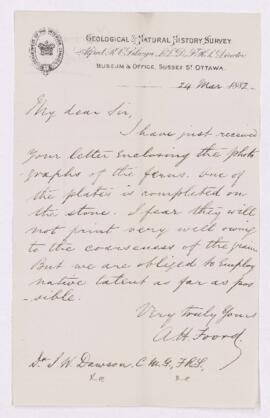 GEOLOGICAL & NATURAL HISTORY SURVEY
Alfred R. C. Selwyn, LL.D., F.R.S., Director
MUSEUM & OFFICE, SUSSEX ST. OTTAWA.
24 Mar 1882
My dear Sir,
I have just received
your letter enclosing the photo
graphs of the ferns. One of
the plates is completed on
the stone. I fear they will
not print very well owing
to the coarseness of the grain
But we are obliged to employ
native talent as far as pos
sible.
Very truly Yours
A.H. Foord.
Dr J. W. Dawson, C.M.G., F.R.S.
&c &c